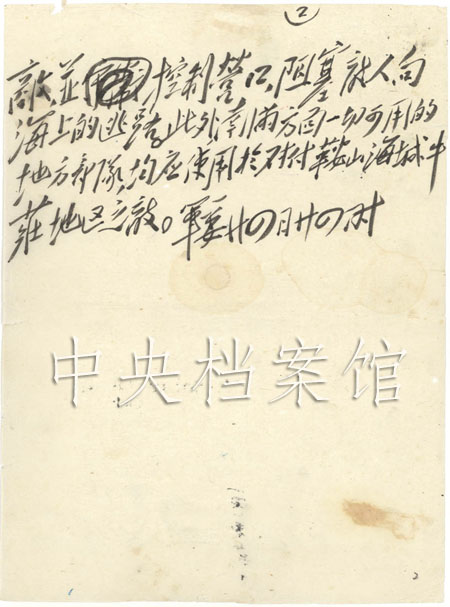 2
敵並控制营口,阻塞敌人向
海上的逃路。此外南满方面一切可用的
地方部隊,均应使用於对付鞍山海城牛
莊地区之敵。軍委廿四日廿四时
中央档案馆
2